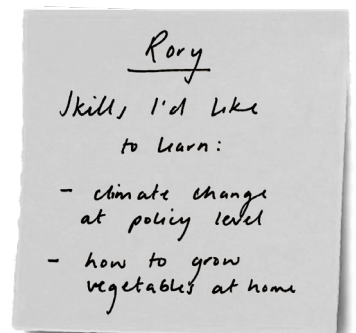 Rory
Skills I'd like
to learn:
- climate change
at policy level
- how to grow
vegetables at home